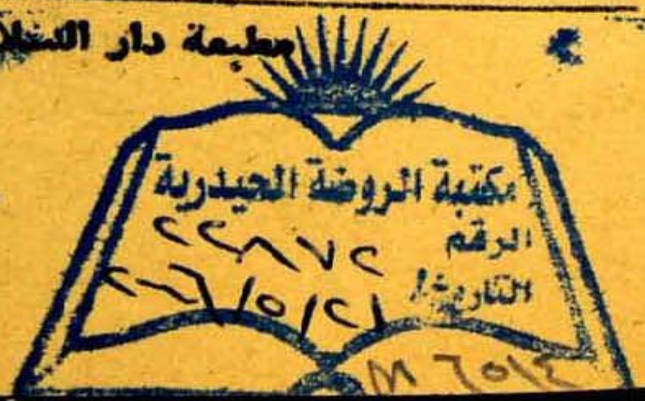 مطبعة دار السلا
مكتبة الروضة الحيدرية
الرقم ٢٢٨٧٢
التاريخ ٢٠٠٦/٥/٢١
M ٦٥١٤